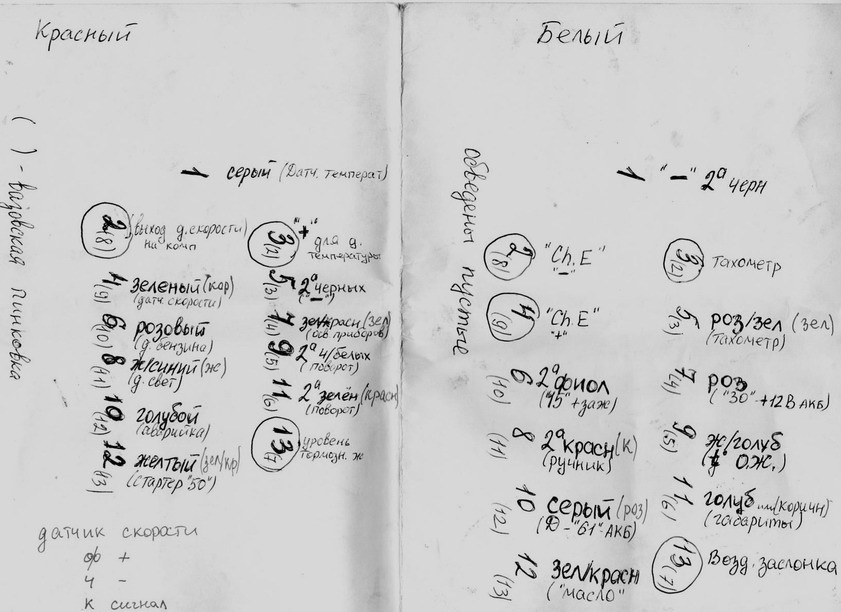 Красный
( ) - вазовская пинковка
1 серый (Датч. температ)
2 (8) выход д. скорости)
на комп
3 (2) "+"
для д.
температуры
4 зеленый (кор)
(9) (датч скорости)
5 2а черных
(3) ("-")
6 розовый
(10) (д. бензина)
7 зел/красн (зел)
(4) (осв. приборов)
8 ж/синий (ж)
(11) (д. свет)
9 2а ч/белых
(5) (поворот)
10 голубой
(12) (аварийка)
11 2а зелён (красн)
(6) (поворот)
12 желтый (зел/кр)
(13) (стартер "50")
13 (7) уровень
тормозн. ж
датчик скорости
ор +
ч -
к сигнал
Белый
обведены пустые
1 "-" 2а черн
2 (8) "Ch. E"
"-"
3 (2) тахометр
4 (9) "Ch. E"
"+"
5 роз/зел (зел)
(3) (тахометр)
6 2а фиол
(10) ("15" + заж)
7 роз
(4) ("30" +12В АКБ)
8 2а красн (к)
(11) (ручник)
9 ж/голуб
(5) (t° О.Ж.)
10 серый (роз)
(12) (D - "61" - АКБ)
11 голуб или (коричн)
(6) (габариты)
12 зел/красн
(13) ("масло"
13 (7) Возд. заслонка